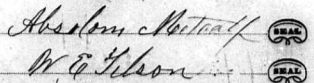 Absolom Metcalf SEAL
W. E. Filson SEAL